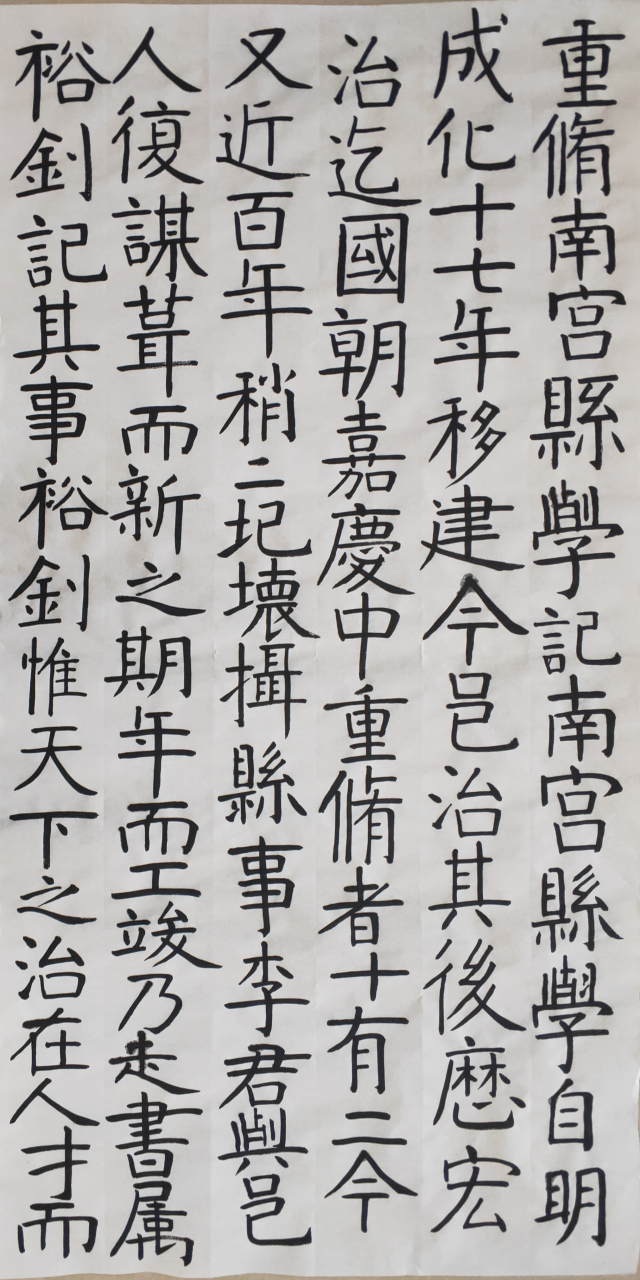 重脩南宫縣學記南宫縣學自明
成化十七年移建今邑治其後歷宏
治迄國朝嘉慶中重脩者十有二今
又近百年稍二圮壞攝縣事李君與邑
人復謀葺而新之期年而工竣乃走書属
裕釗記其事裕釗惟天下之治在人才而